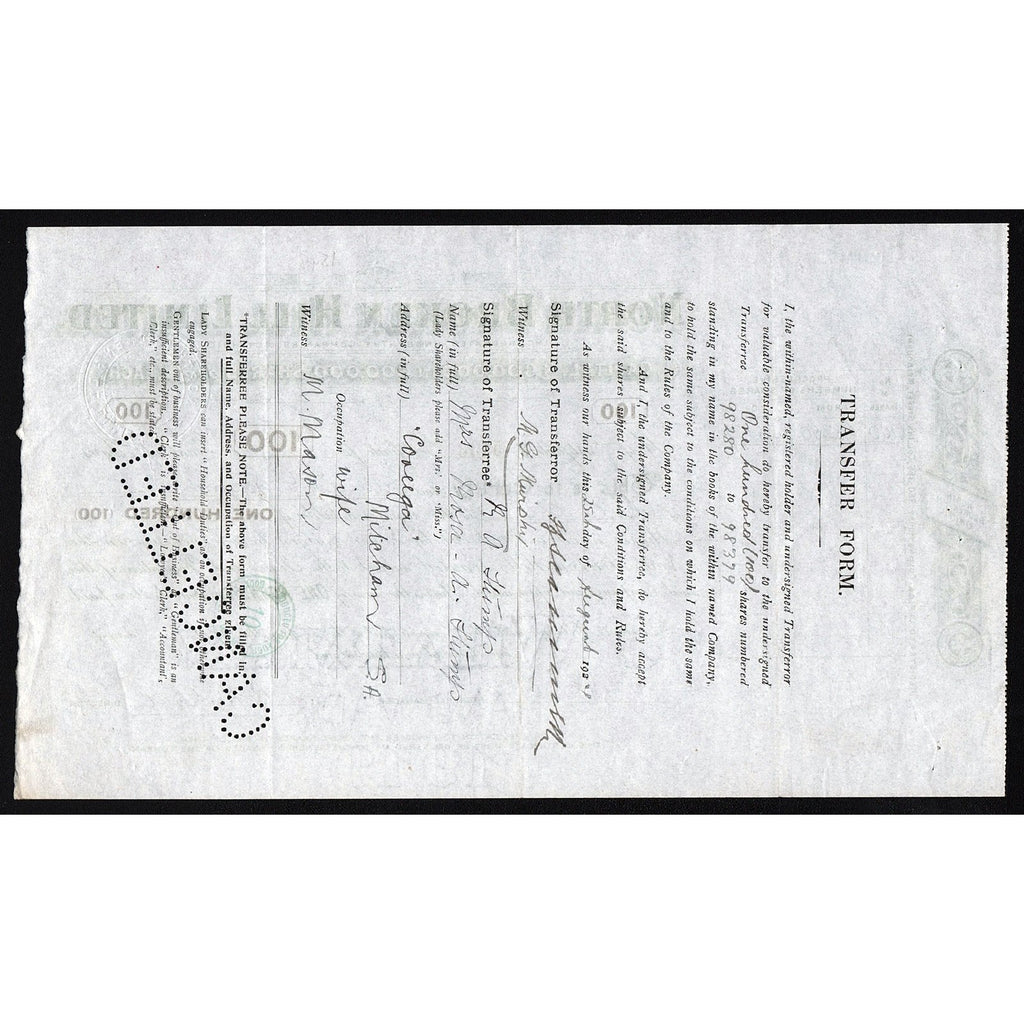 TRANSFER FORM.
I, the within-named, registered holder and undersigned Transferror
for valuable consideration do hereby transfer to the undersigned
Transferree One hundred (100) shares numbered
98280 to 98379
standing in my name in the books of the within named Company,
to hold the same subject to the conditions on which I hold the same
and to the Rules of the Company.
And I, the undersigned Transferree, do hereby accept
the said shares subject to the said Conditions and Rules.
As witness our hands this 25th day of August 192
Signature of Transferror
Witness
Signature of Transferree* R A
Name (in full) Mrs Rosa
(Lady Shareholders please add "Mrs. or "Miss.")
Address (in full) "Coreega"
Mitcham S.A.
Occupation Wife
Witness M Mason
*TRANSFERREE PLEASE NOTE.—The above form must be filled in
and full Name, Address, and Occupation of Transferree given.
LADY SHAREHOLDERS can insert "Household Duties" as an occupation if
engaged.
GENTLEMEN out of business will please write "Out of Business" as "Gentleman" is an
insufficient description. "Clerk" is insufficient—"Lawyer's Clerk," "Accountant's
Clerk," etc., must be stated
CANCELLED
NORTH BROKEN HILL LIMITED
100
100
100
ONE HUNDRED (100